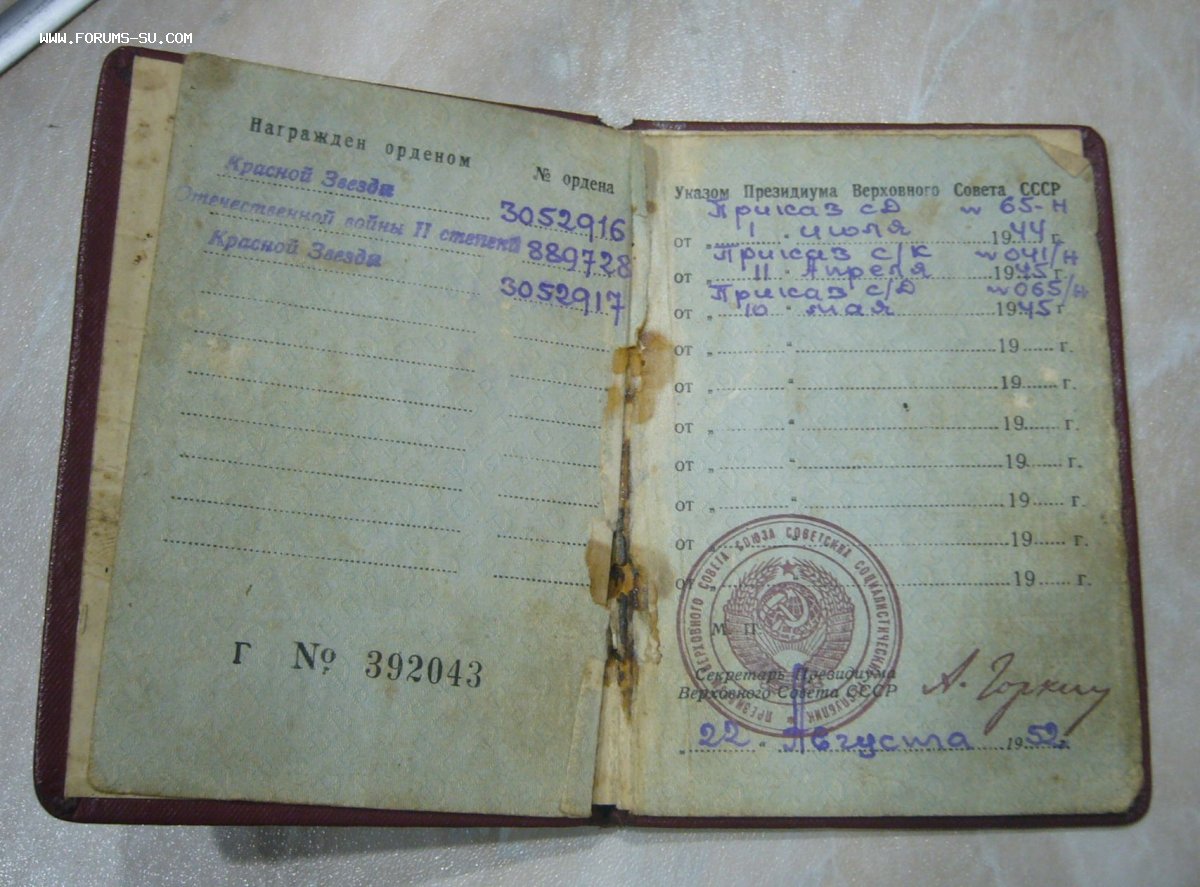 WWW.FORUMS-SU.COM
Награжден орденом № ордена
Красной Звезды 3052916
Отечественной войны II степени 889728
Красной Звезды 3052917
Г № 392043
Указом Президиума Верховного Совета СССР
Приказ сД № 65-н
от „ 1 “ июля 1944 г.
Приказ с/к № 041/н
от „ 11 “ Апреля 1945 г.
Приказ с/Д № 065/н
от „ 10 “ мая 1945 г
от „ “ 19 г.
от „ “ 19 г.
от „ “ 19 г.
от „ “ 19 г.
от „ “ 19 г.
от „ “ 19 г.
от „ “ 19 г.
ПРЕЗИДИУМ ВЕРХОВНОГО СОВЕТА СОЮЗА СОВЕТСКИХ СОЦИАЛИСТИЧЕСКИХ РЕСПУБЛИК
М. П.
Секретарь Президиума
Верховного Совета СССР А. Горкин
„ 22 “ Августа 1952 г.